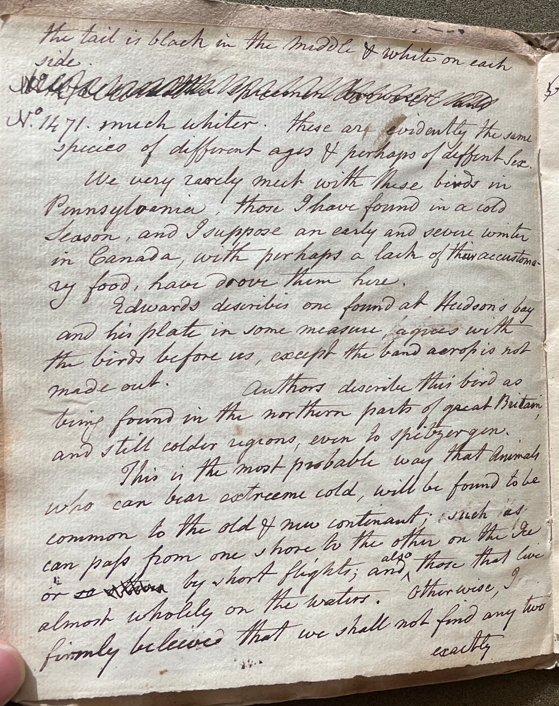 the tail is black in the middle & white on each
side.
specimen
No. 1471. much whiter. these are evidently the same
species of different ages & perhaps of diffent Sex.
We very rarely meet with these birds in
Pennsylvania, those I have found in a cold
Season, and I suppose an early and severe winter
in Canada, with perhaps a lack of their accustoma-
ry food, have drove them here.
Edwards describes one found at Hudsons bay
and his plate in some measure, agrees with
the birds before us, except the band across is not
made out. Authors describe this bird as
being found in the northern parts of great Britain,
and still colder regions, even to spitzgergen.
This is the most probable way that animals
who can bear extreeme cold, will be found to be
common to the old & new continant; such as
can pass from one shore to the other on the Ice
or by short flights; and also those that live
almost wholily on the waters. Otherwise, I
firmly believed that we shall not find any two
exactly